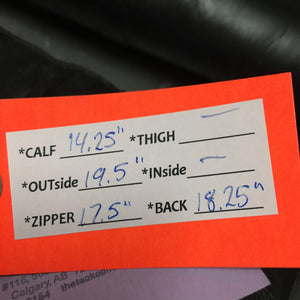 *CALF 14.25" *THIGH —
*OUTside 19.5" *INside —
*ZIPPER 17.5" *BACK 18.25"
Calgary, AB